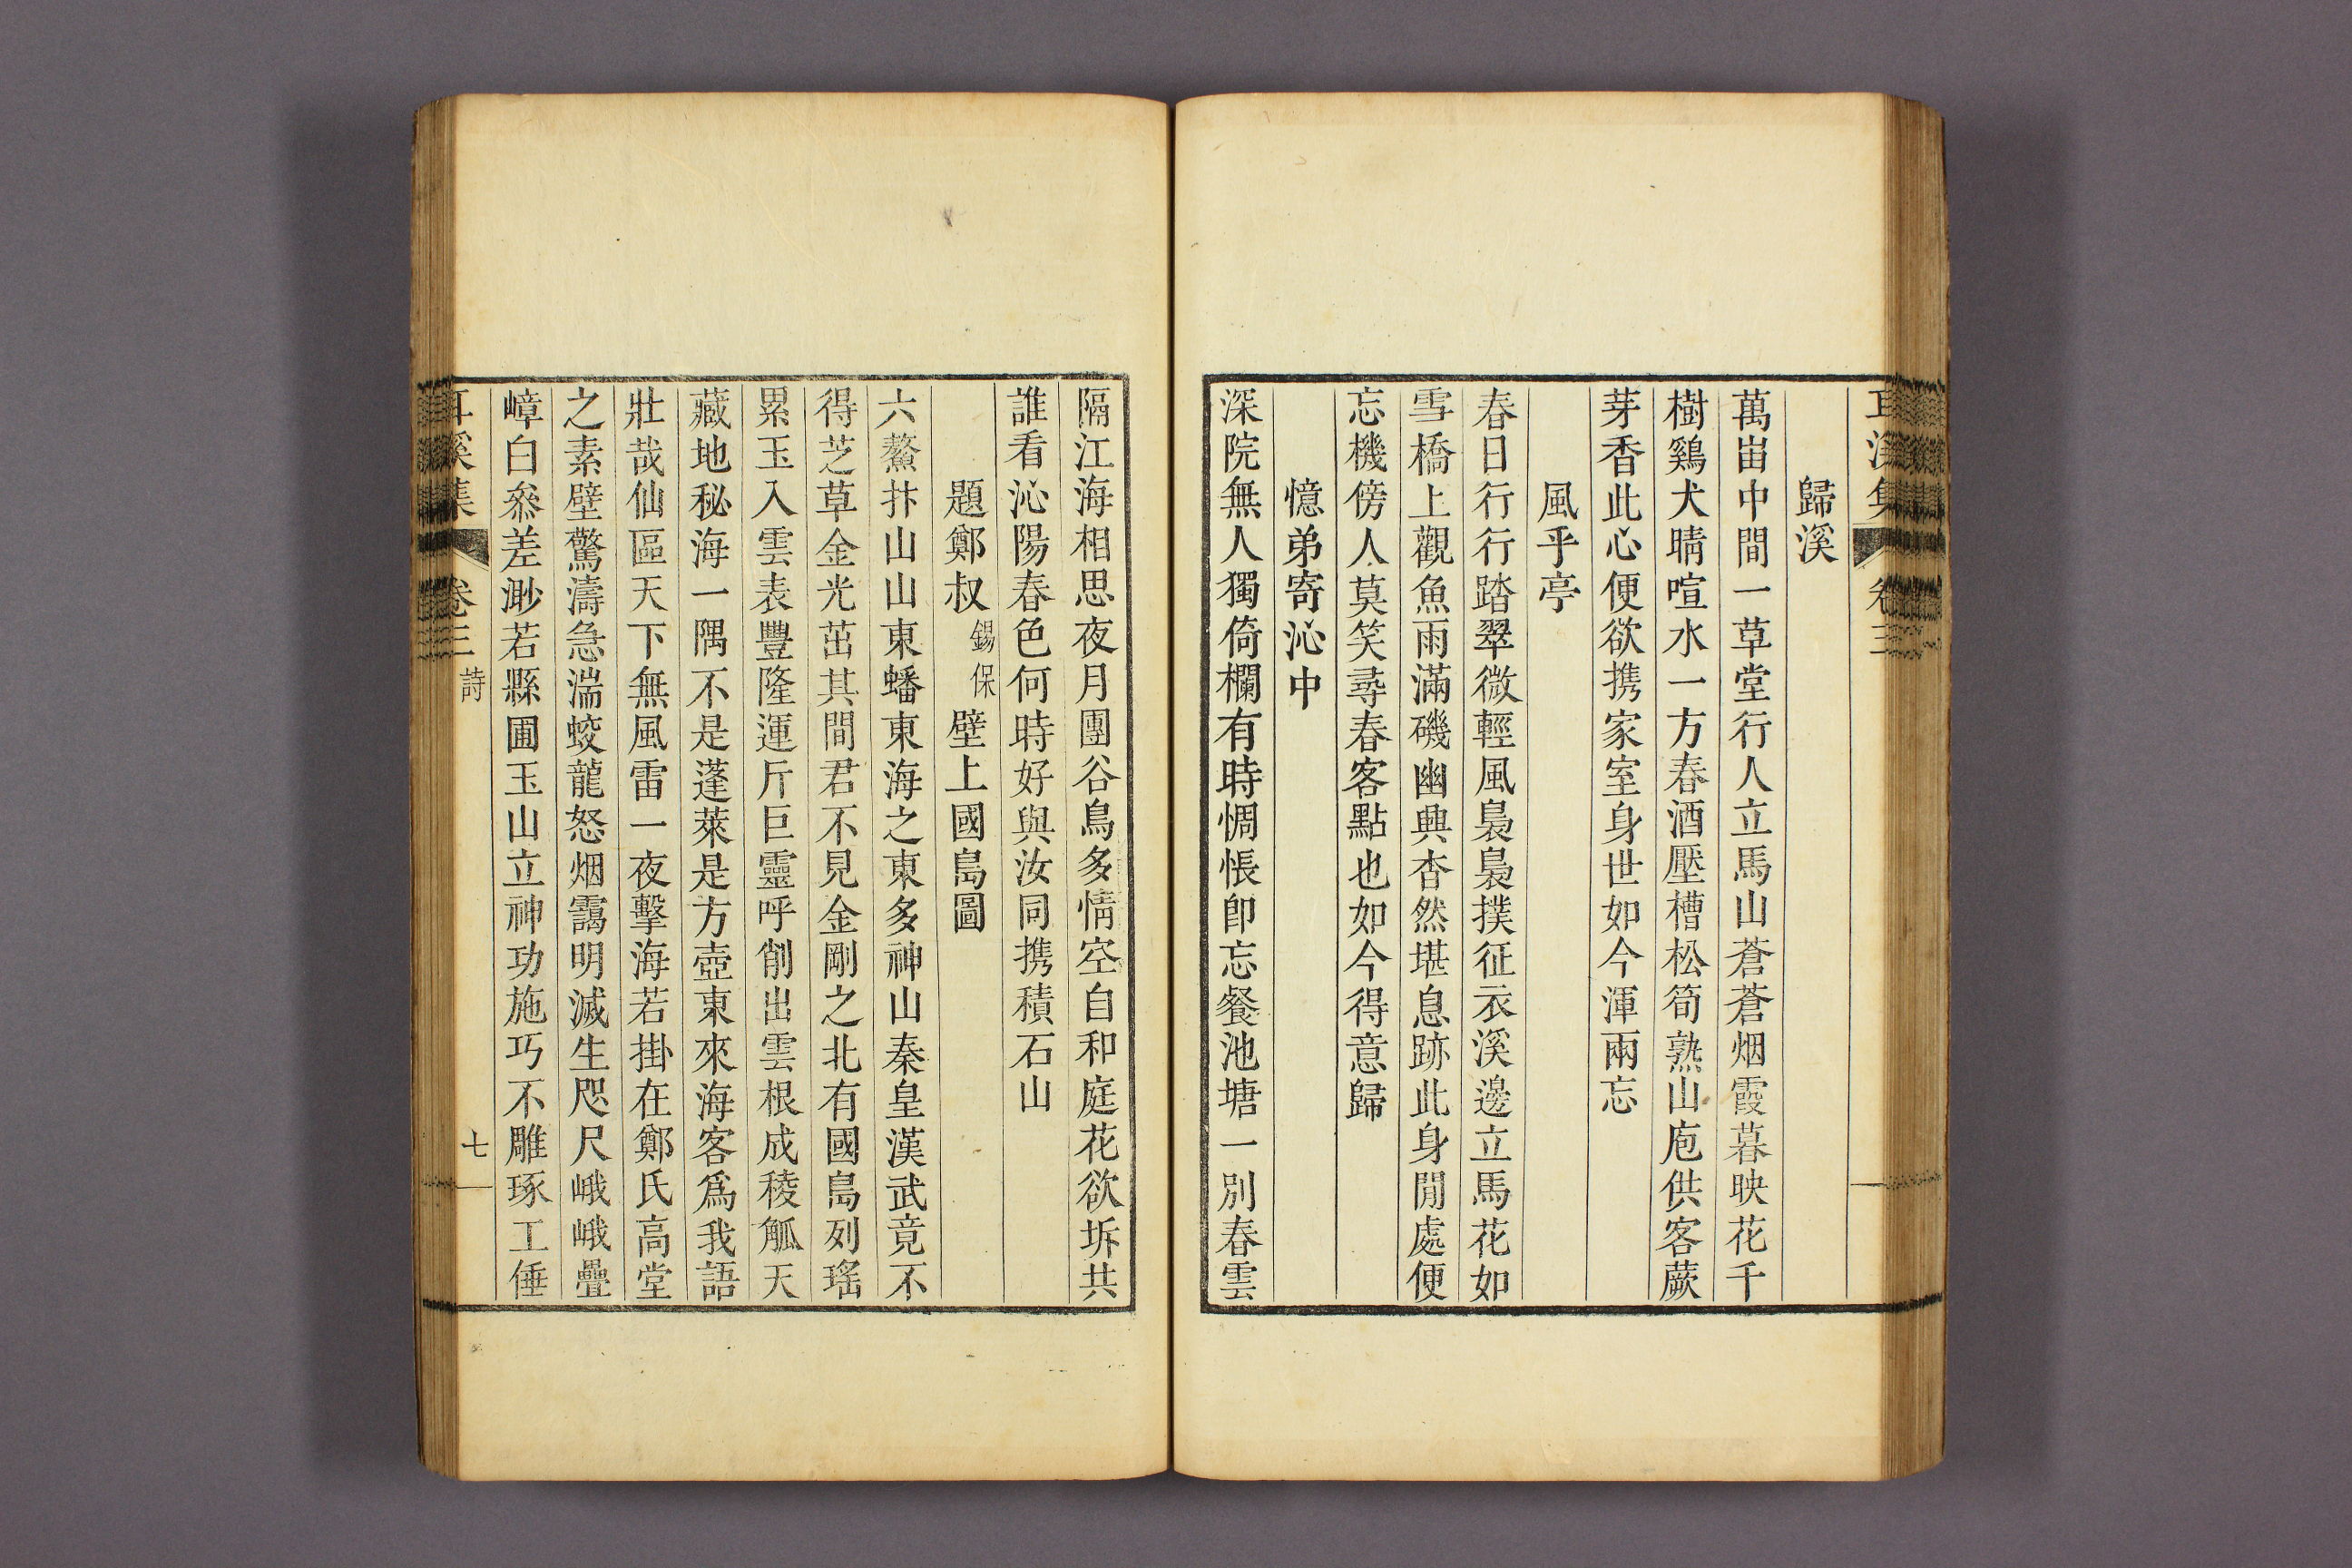 耳溪集 卷三
歸溪
萬峀中間一草堂行人立馬山蒼蒼烟霞暮映花千
樹鷄犬晴喧水一方春酒壓槽松筍熟山庖供客蕨
芽香此心便欲携家室身世如今渾兩忘
風乎亭
春日行行踏翠微輕風裊裊撲征衣溪邊立馬花如
雪橋上觀魚雨滿磯幽興杳然堪息跡此身閒處便
忘機傍人莫笑尋春客點也如今得意歸
憶弟寄沁中
深院無人獨倚欄有時惆悵卽忘餐池塘一別春雲
隔江海相思夜月團谷鳥多情空自和庭花欲坼共
誰看沁陽春色何時好與汝同携積石山
題鄭叔錫保壁上國島圖
六鰲抃山山東蟠東海之東多神山秦皇漢武竟不
得芝草金光茁其間君不見金剛之北有國島列瑤
累玉入雲表豐隆運斤巨靈呼削出雲根成稜觚天
藏地秘海一隅不是蓬萊是方壺東來海客爲我語
壯哉仙區天下無風雷一夜擊海若掛在鄭氏高堂
之素壁驚濤急湍蛟龍怒烟靄明滅生咫尺峨峨疊
嶂白叅差渺若縣圃玉山立神功施巧不雕琢工倕
耳溪集 卷三 詩 七